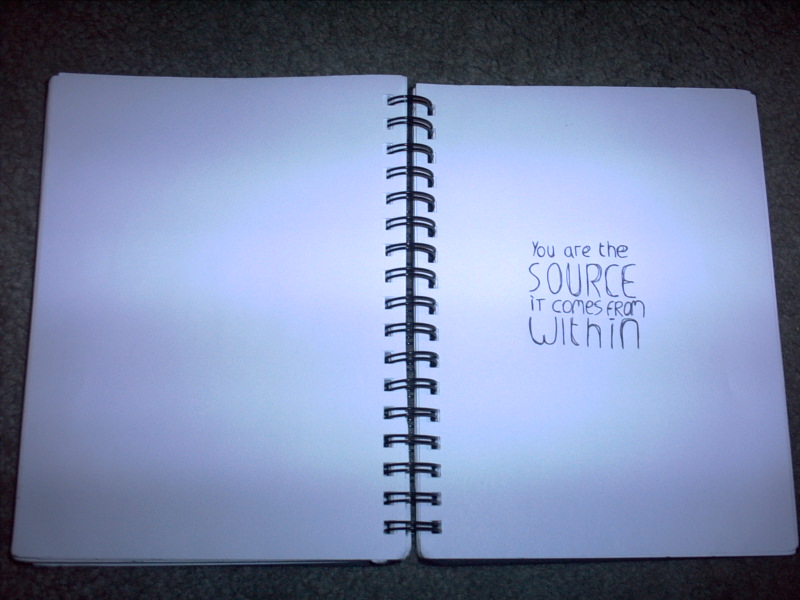 You are the
SOURCE
iT comes FROM
WIthin